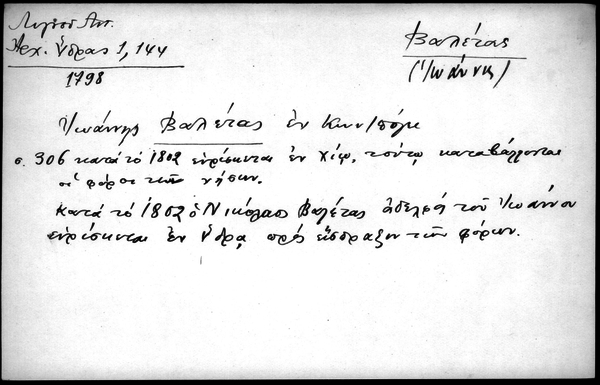 Λιγνοῦ Ἀντ.
Ἀρχ. Ὕδρας 1, 144
1798
Βαλέτας
(Ἰωάννης)
Ἰωάννης Βαλέτας ἐν Κων/πόλει
σ. 306 κατὰ τὸ 1802 εὑρίσκεται ἐν Χίῳ, τούτῳ καταβάλλονται
οἱ φόροι τῶν νήσων.
Κατὰ τὸ 1802 ὁ Νικόλαος Βαλέτας ἀδελφὸς τοῦ Ἰωάννου
εὑρίσκεται ἐν Ὕδρᾳ πρὸς εἴσπραξιν τῶν φόρων.